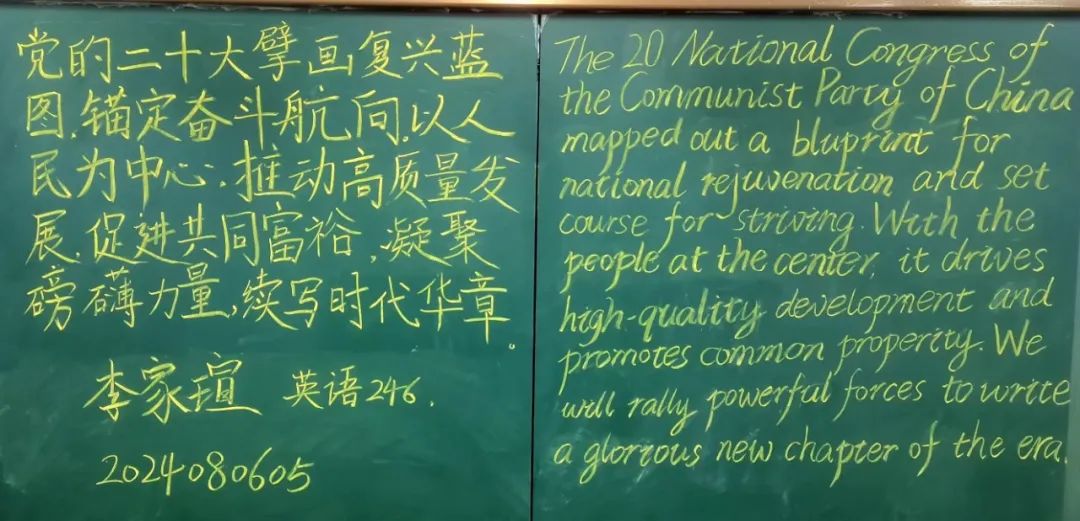 党的二十大擘画复兴蓝
图,锚定奋斗航向,以人
民为中心,推动高质量发
展,促进共同富裕,凝聚
磅礴力量,续写时代华章。
李家瑄 英语246.
2024080605
The 20 National Congress of
the Communist Party of China
mapped out a bluprint for
national rejuvenation and set
course for striving. With the
people at the center, it drives
high-quality development and
promotes common properity. We
will rally powerful forces to write
a glorious new chapter of the era.